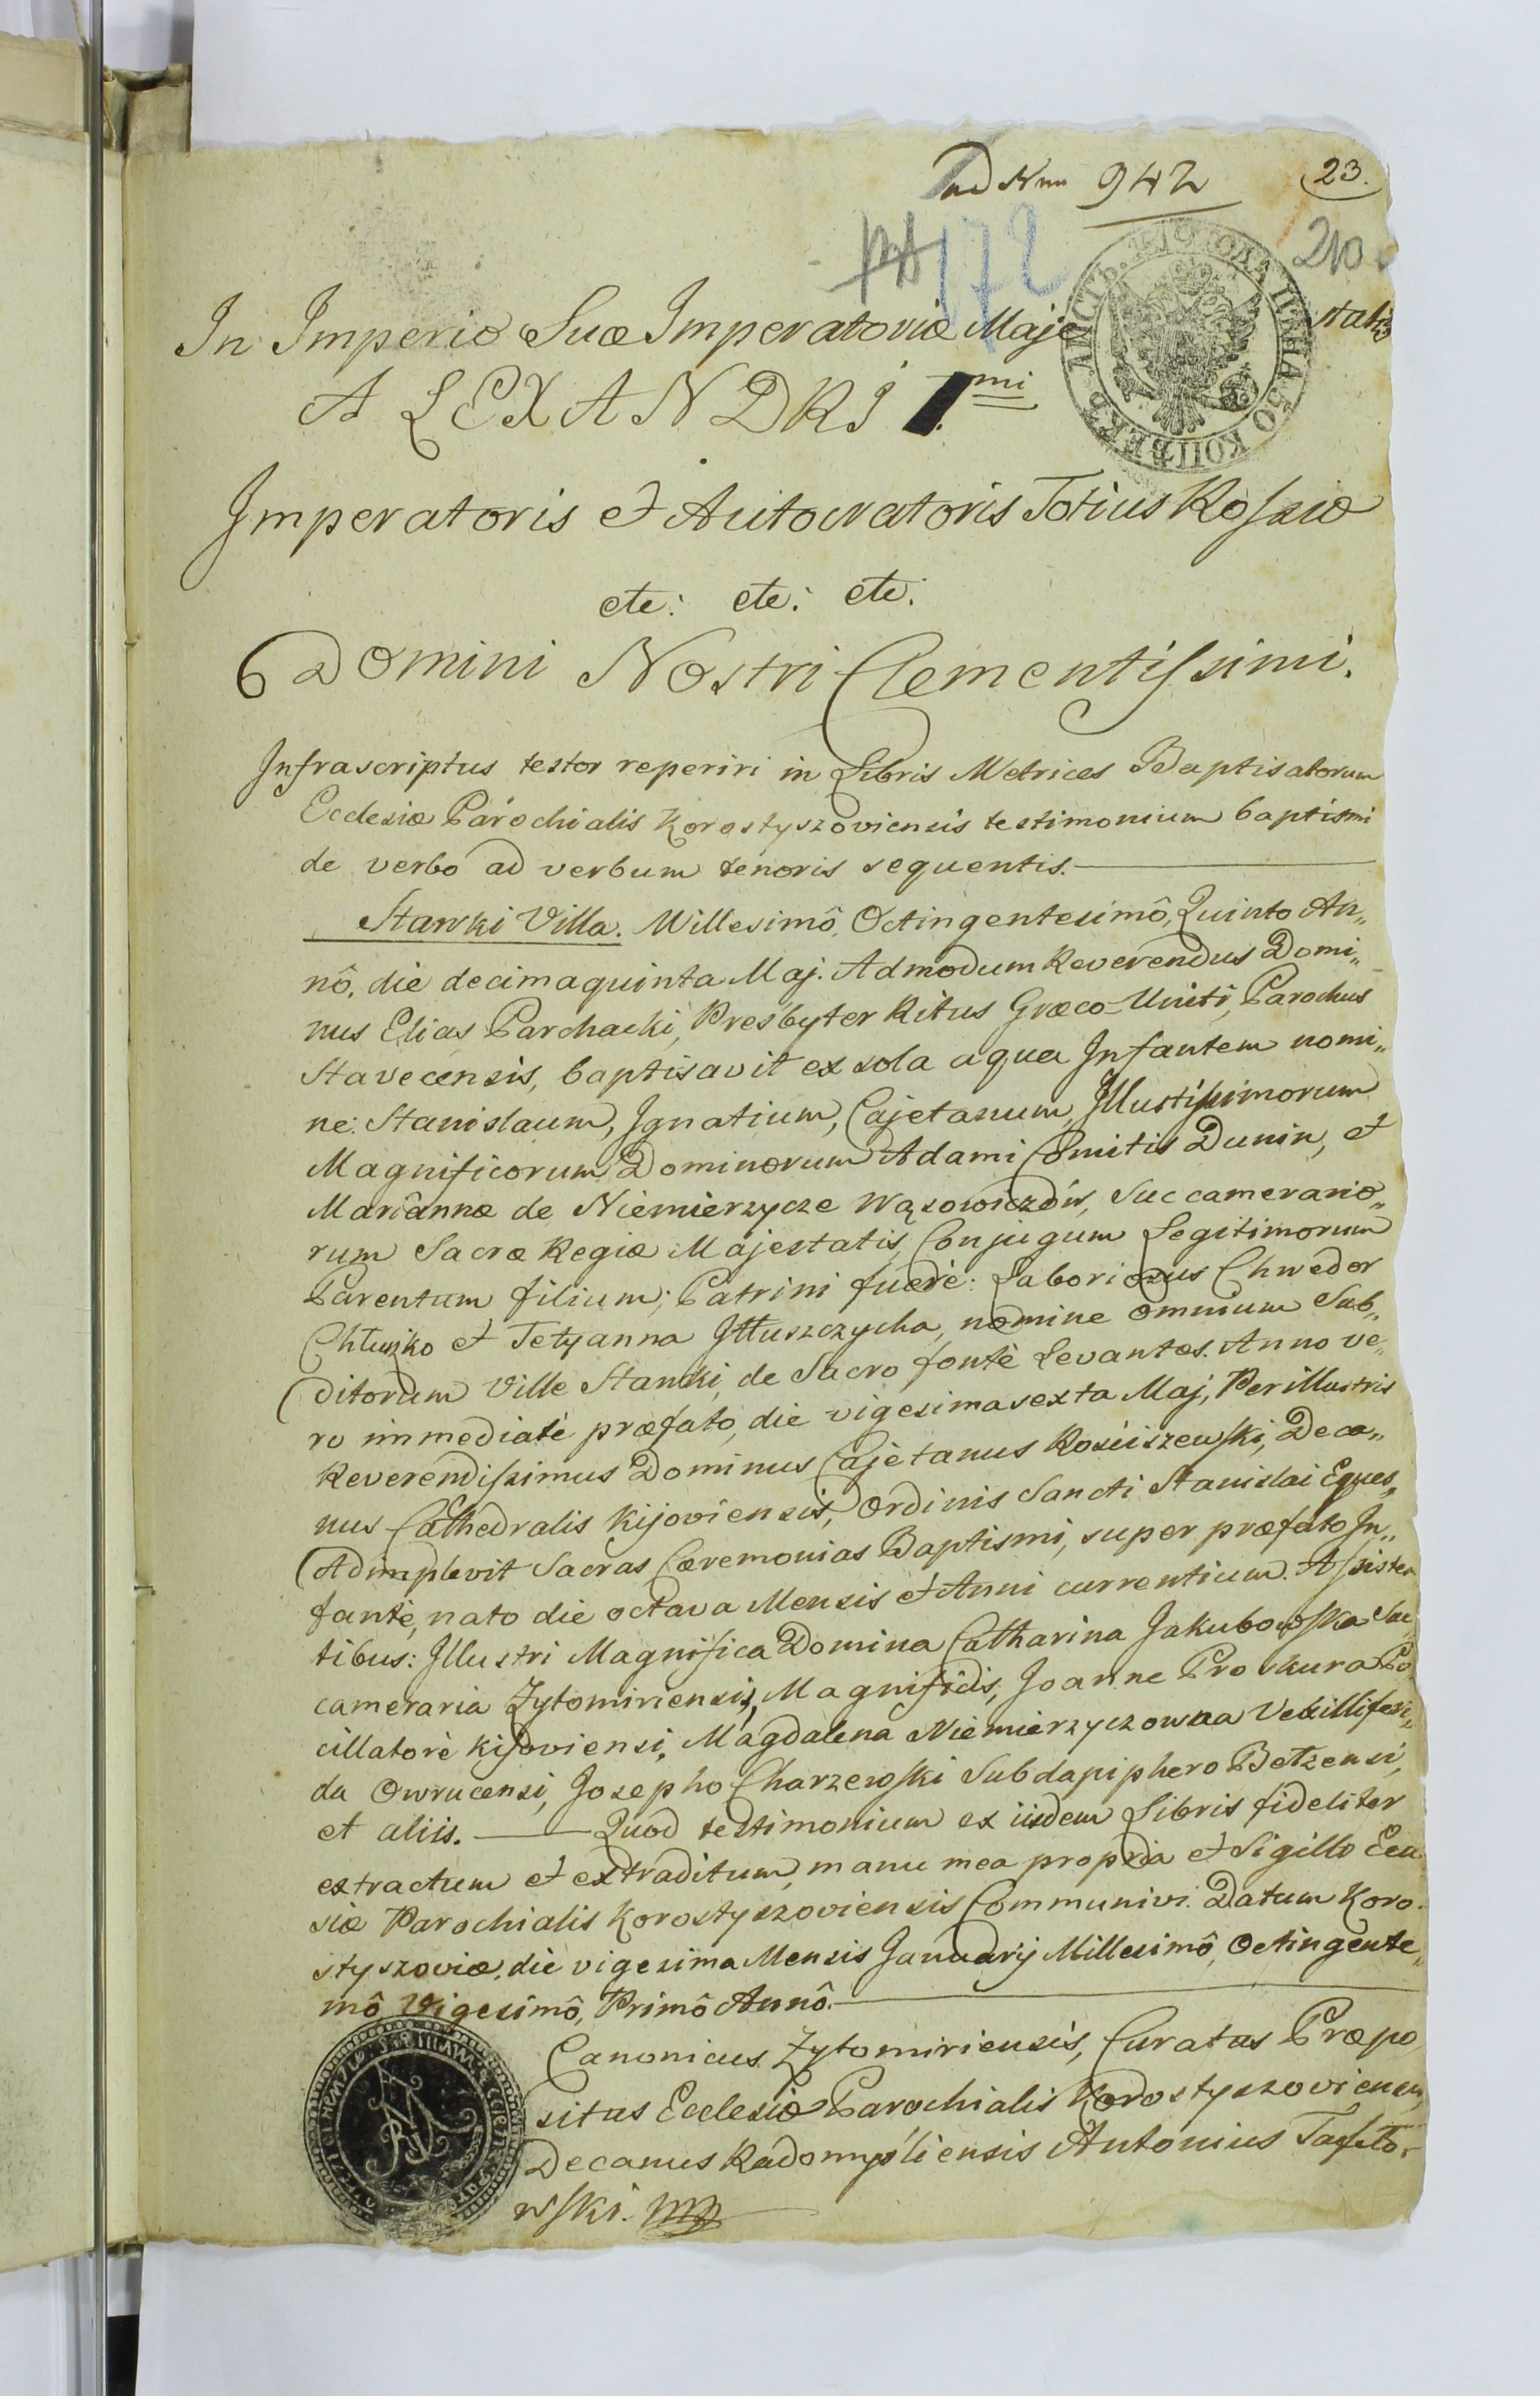 ad Nrum 942
23.
172
210
ЛИСТЪ. ЦѢНА 50 КОПѢЕКЪ
In Imperio Suæ Imperatoriæ Majestatis
ALEXANDRI I.mi
Imperatoris et Autocratoris Totius Rossiæ
etc: etc: etc:
Domini Nostri Clementissimi.
Infrascriptus testor reperiri in Libris Metrices Baptisatorum
Ecclesiæ Parochialis Korostyszoviensis testimonium baptismi
de verbo ad verbum tenoris sequentis.
Stawki Villa. Millesimô, Octingentesimô, Quinto An„
nô, die decimaquinta Maj. Admodum Reverendus Domi„
nus Elias Parchacki, Presbyter Ritus Græco-Uniti, Parochus
Stavecensis, baptisavit ex sola aqua Infantem nomi„
ne: Stanislaum, Ignatium, Cajetanum, Illustissimorum
Magnificorum Dominorum Adami Comitis Dunin, et
Mariannæ de Niemierzycze Wązowiczów, Succamerario„
rum Sacræ Regiæ Majestatis, Conjugum Legitimorum
Parentum filium; Patrini fuerè: Laboriosus Chwedor
Chłuszko et Tetyanna Iłłuszczycha, nomine omnium Sub„
ditorum Ville Stawki, de Sacro fontè Levantes. Anno ve„
ro immediatè præfato, die vigesimasexta Maj, Perillustris
Reverendissimus Dominus Cajetanus Kościszewski, Deca„
nus Cathedralis Kijoviensis, Ordinis Sancti Stanislai Eques,
Adimplevit Sacras Cæremonias Baptismi, super præfato In„
fantè, nato die octava Mensis et Anni currentium. Assisten
tibus: Illustri Magnifica Domina Catharina Jakubowska Suc
cameraria Zytomiriensis, Magnificis, Joanne Proskura Po
cillatorè Kijoviensi, Magdalena Niemierzyczowna Vexilliferi„
da Owrucensi, Josepho Charzewski Subdapiphero Betzensi,
et aliis. Quod testimonium ex iisdem Libris fideliter
extractum et extraditum, manu mea propria et Sigillo Eccl
siæ Parochialis Korostyszoviensis Communivi. Datum Koro„
styszoviæ, die vigesima Mensis Januarij Millesimô, Octingente„
mô Vigesimô, Primô Annô.
Canonicus Zytomiriensis, Curatus Præpo
situs Ecclesiæ Parochialis Korostyszoviensis,
Decanus Radomysliensis Antonius
wski. mp